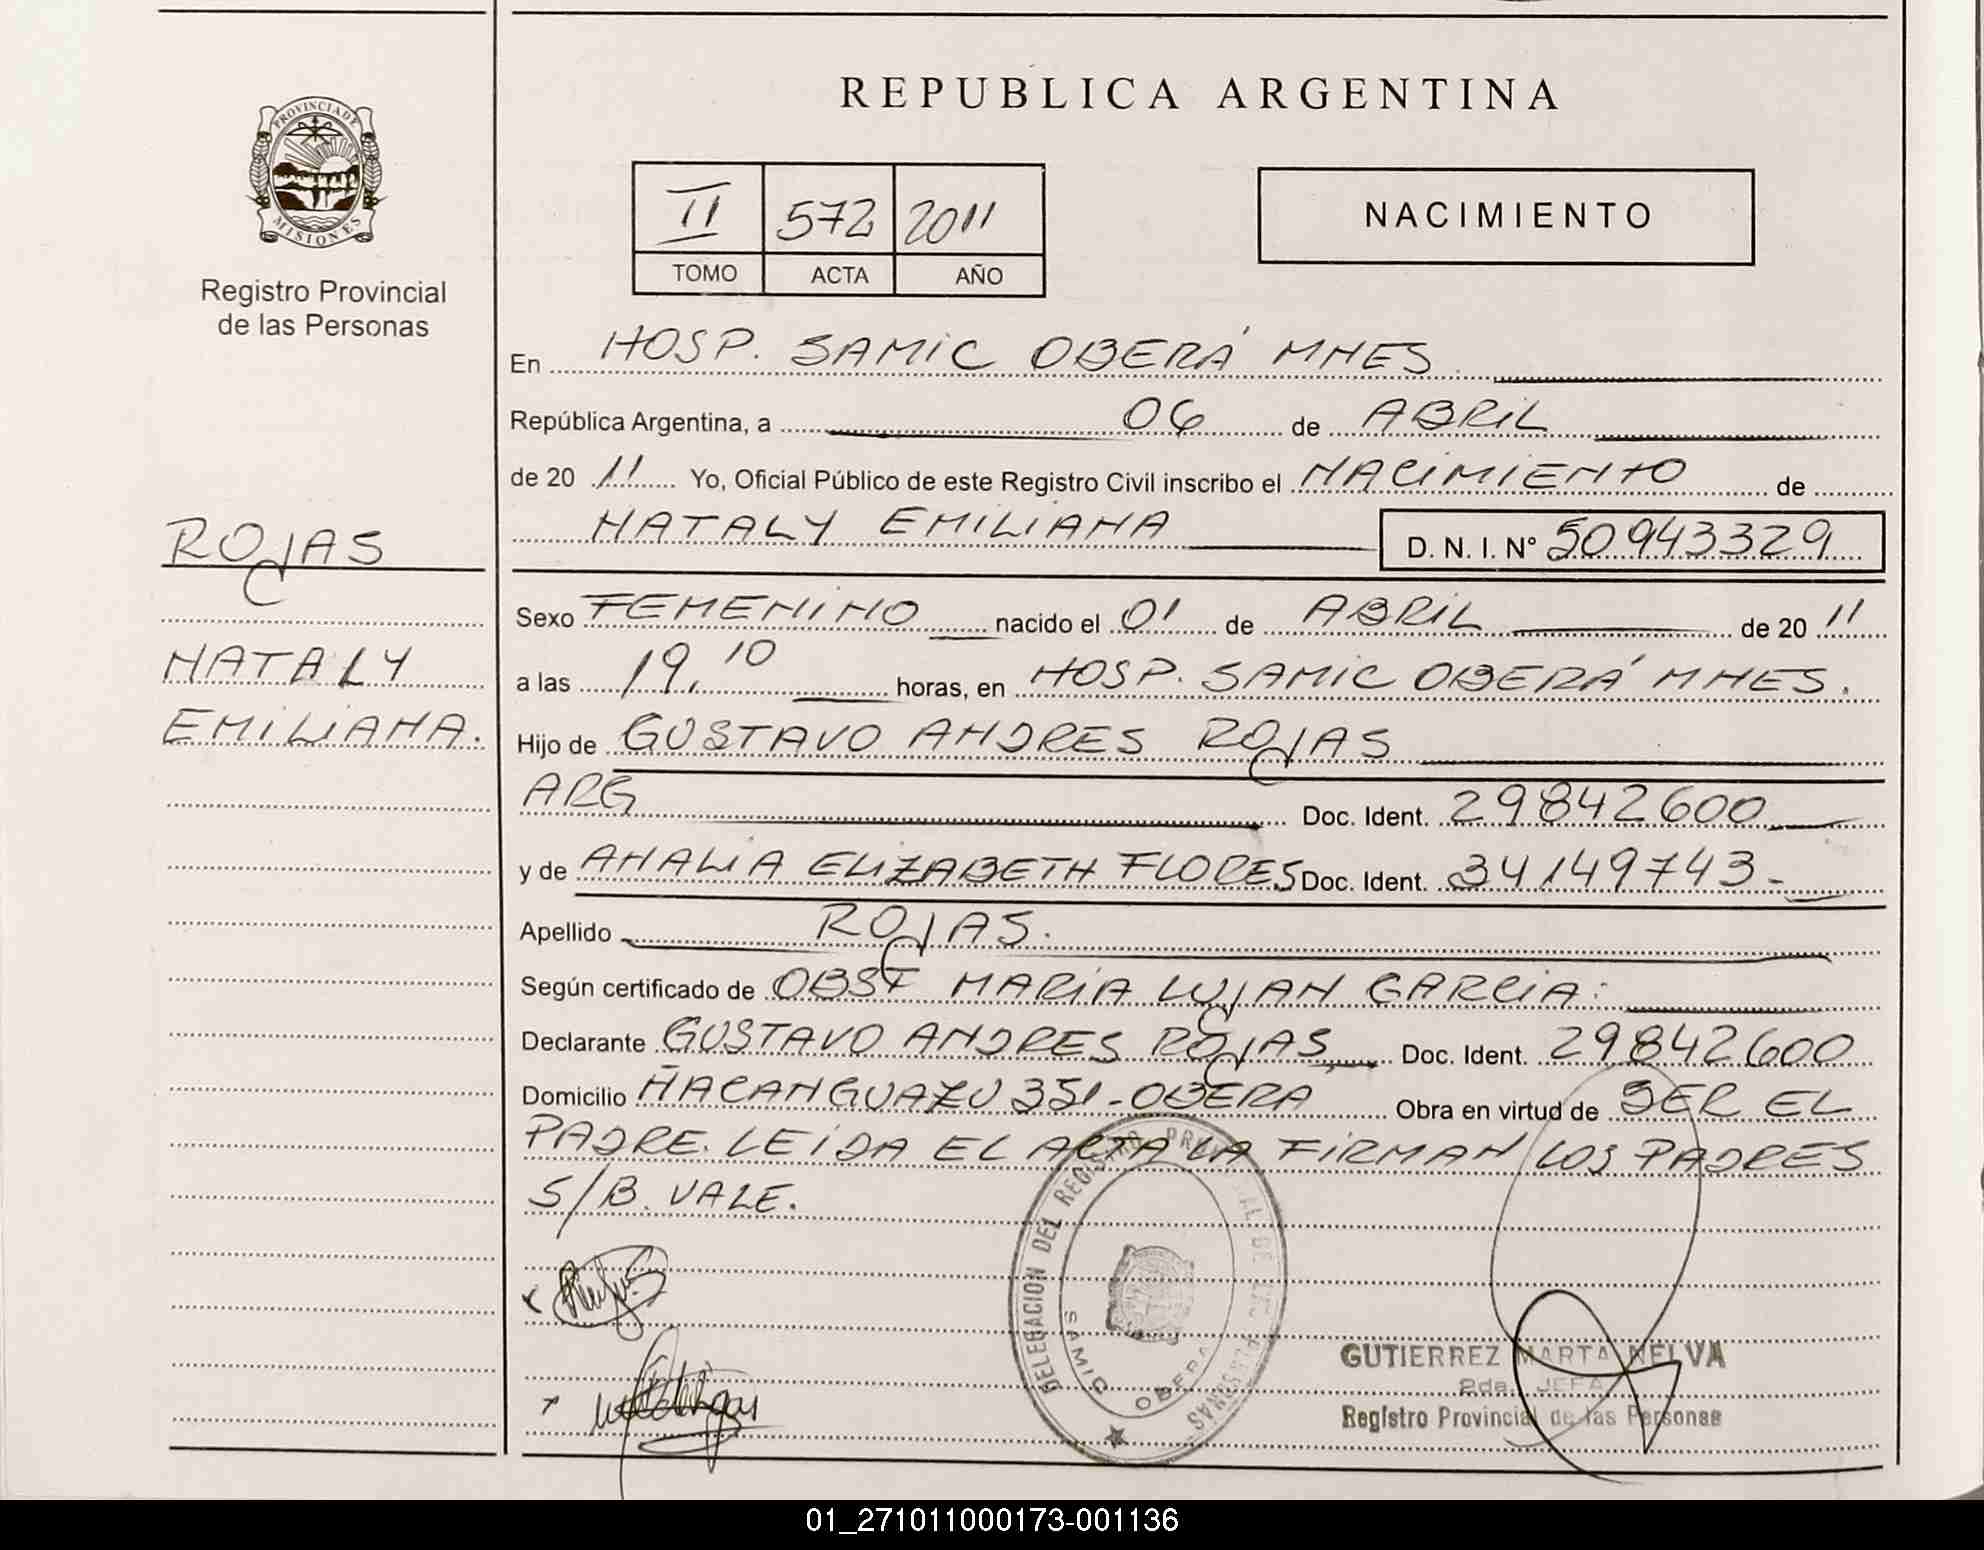 PROVINCIA DE
MISIONES
Registro Provincial
de las Personas
ROJAS
NATALY
EMILIANA.
REPUBLICA ARGENTINA
II 572 2011
TOMO ACTA AÑO
NACIMIENTO
En HOSP. SAMIC OBERÁ MNES
República Argentina, a 06 de ABRIL
de 20 11 Yo, Oficial Público de este Registro Civil inscribo el NACIMIENTO de
NATALY EMILIANA D. N. I. N° 50943329
Sexo FEMENINO nacido el 01 de ABRIL de 20 11
a las 19,10 horas, en HOSP. SAMIC OBERÁ MNES.
Hijo de GUSTAVO ANDRES ROJAS
ARG Doc. Ident. 29842600
y de ANALIA ELIZABETH FLORES Doc. Ident. 34149743-
Apellido ROJAS.
Según certificado de OBST MARIA LUJAN GARCIA:
Declarante GUSTAVO ANDRES ROJAS Doc. Ident. 29842600
Domicilio ÑACANGUAZU 351-OBERA Obra en virtud de SER EL
PADRE. LEIDA EL ACTA LA FIRMAN LOS PADRES
S/B. VALE.
DELEGACION DEL REGISTRO PROVINCIAL DE LAS PERSONAS
SAMIC OBERA
GUTIERREZ MARTA NELVA
2da. JEFA
Registro Provincial de las Personas
01_271011000173-001136